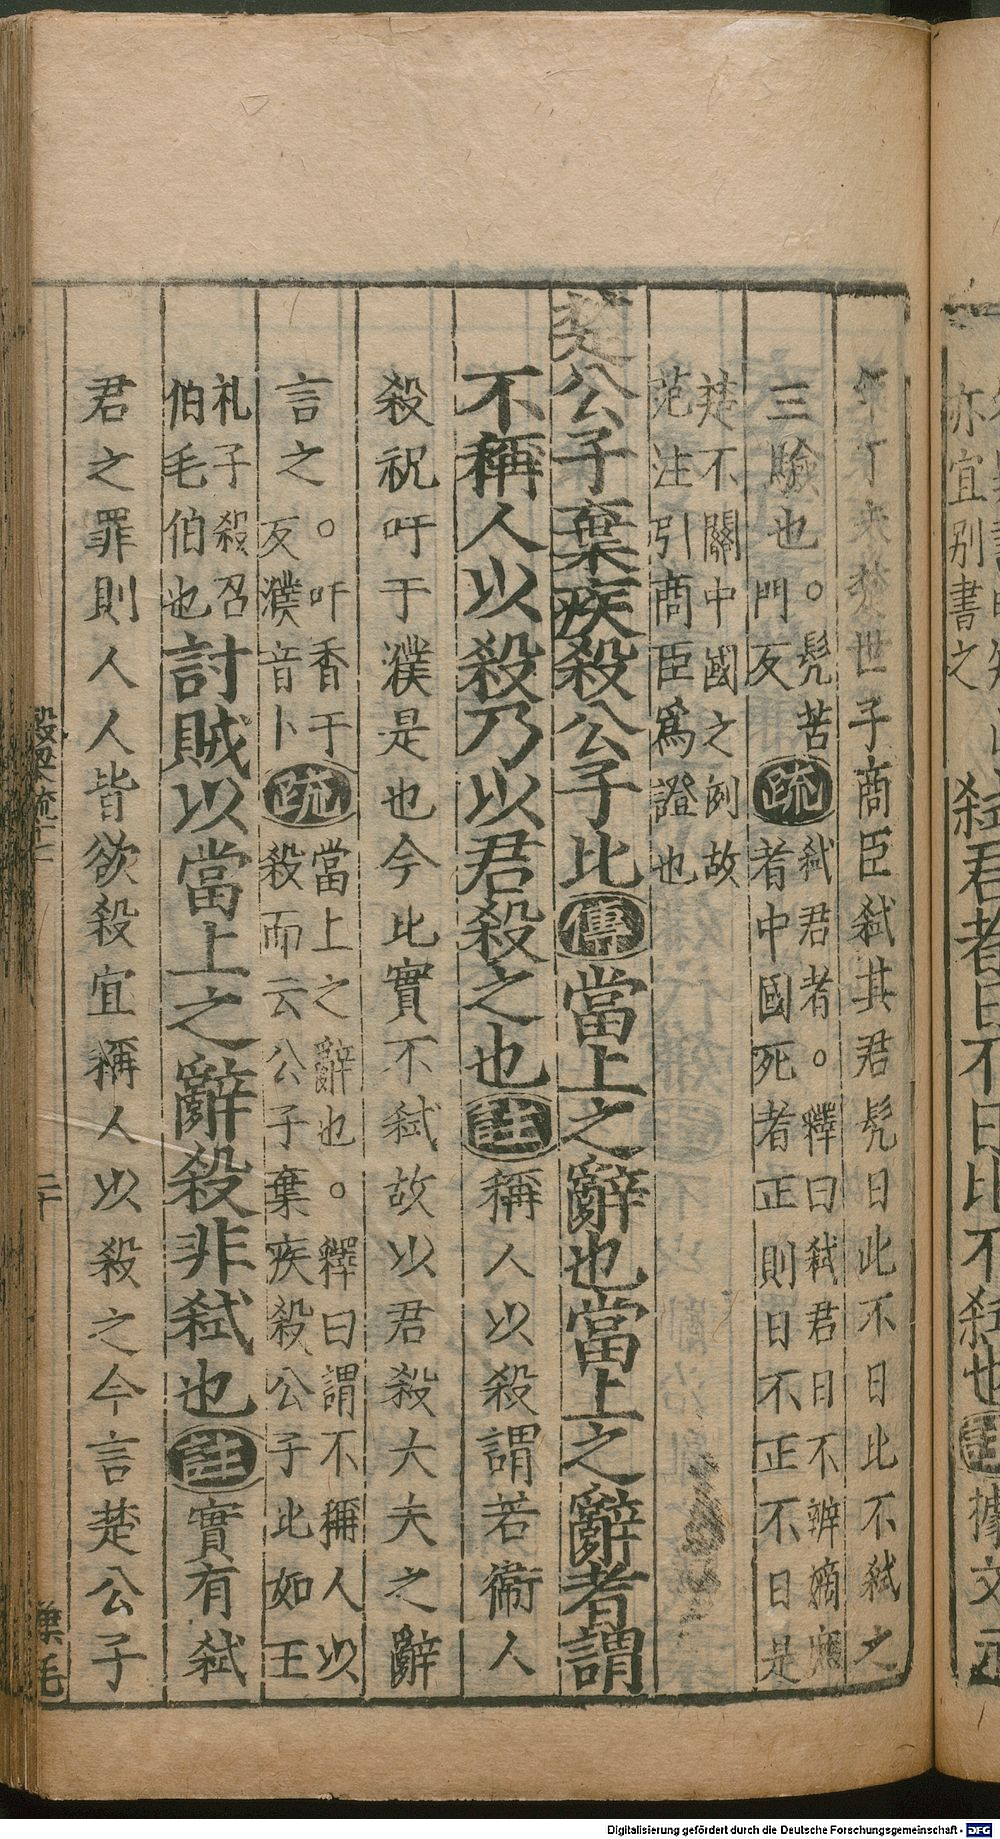 亦宜别書之 弑君者日不日比不弑也 註 據文元
年丁未楚世子商臣弑其君髠日此不日比不弑之
三驗也。髠苦門反 疏 弑君者。釋曰弑君日不辨嫡庶者中國死者正則日不正不日是
楚不關中國之例故范注引商臣爲證也
楚公子棄疾殺公子比 傳 當上之辭也當上之辭者謂
不稱人以殺乃以君殺之也 註 稱人以殺謂若衞人
殺祝吁于濮是也今比實不弑故以君殺大夫之辭
言之。吁香于反濮音卜 疏 當上之辭也。釋曰謂不稱人以殺而云公子棄疾殺公子比如王
札子殺召伯毛伯也 討賊以當上之辭殺非弑也 註 實有弑
君之罪則人人皆欲殺宜稱人以殺之今言楚公子
二十
Digitalisierung gefördert durch die Deutsche Forschungsgemeinschaft - DFG